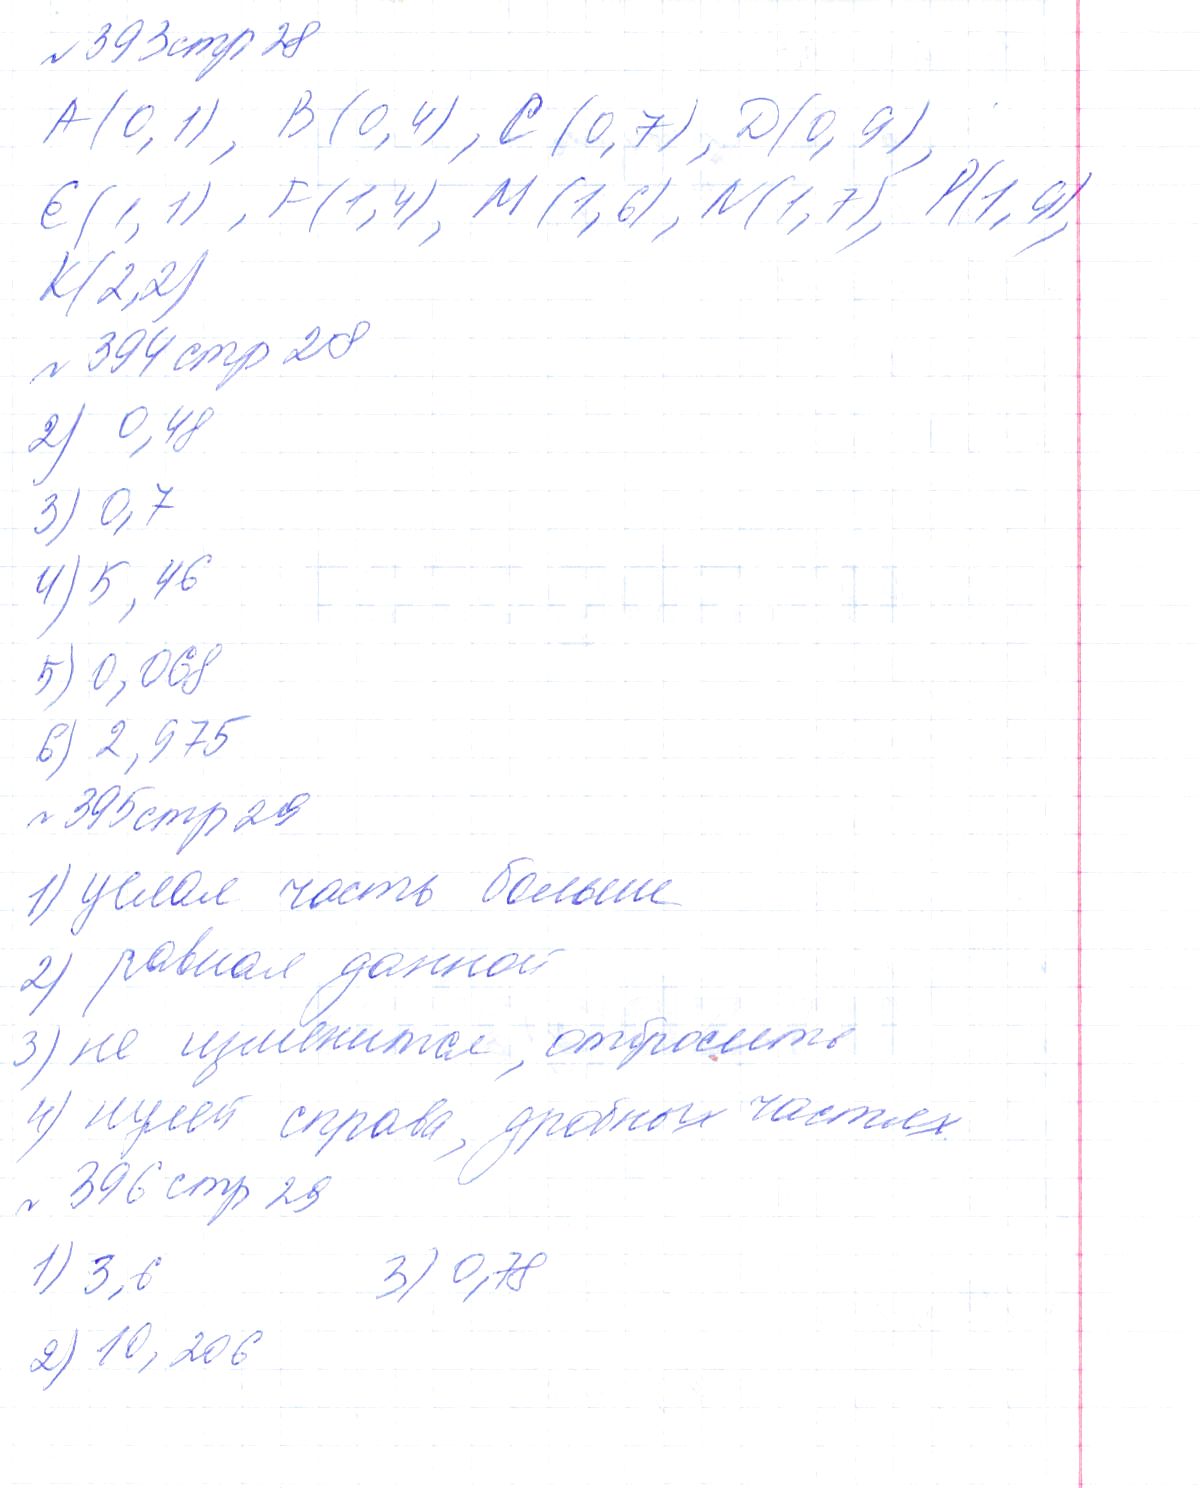 № 393 стр 28
A(0,1), B(0,4), C(0,7), D(0,9),
E(1,1), F(1,4), M(1,6), N(1,7), P(1,9),
K(2,2)
№ 394 стр 28
2) 0,48
3) 0,7
4) 5,46
5) 0,068
6) 2,975
№ 395 стр 29
1) целая часть больше
2) равная данной
3) не изменится, отбросить
4) нулей справа, дробных частях
№ 396 стр 29
1) 3,6 3) 0,78
2) 10,206